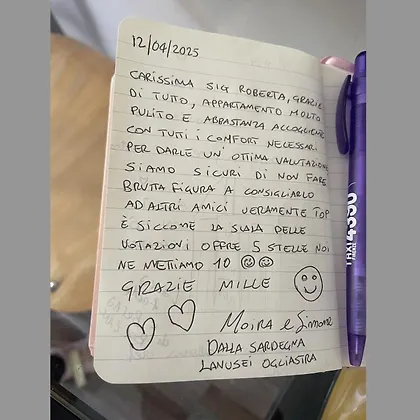 12/04/2025
CARISSIMA SIG ROBERTA, GRAZIE
DI TUTTO, APPARTAMENTO MOLTO
PULITO E ABBASTANZA ACCOGLIENTE
CON TUTTI I COMFORT NECESSARI
PER DARLE UN' OTTIMA VALUTAZIONE
SIAMO SICURI DI NON FARE
BRUTTA FIGURA A CONSIGLIARLO
AD ALTRI AMICI VERAMENTE TOP
È SICCOME LA SCALA DELLE
VOTAZIONI OFFRE 5 STELLE NOI
NE METTIAMO 10
GRAZIE MILLE
Moira e Simone
DALLA SARDEGNA
LANUSEI OGLIASTRA
TAXI
4390